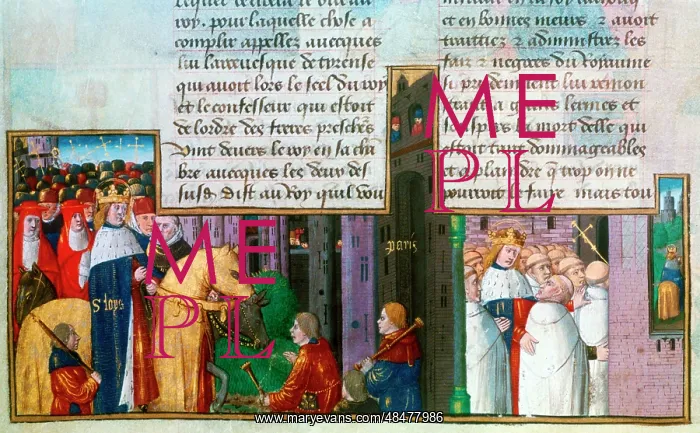 roy. pour laquelle chose a
complir appellez auecques
luy larceuesque de tyrense
qui auoit lors le seel du roy
et le confesseur qui estoit
de lordre des freres preschés
Vint deuers le roy en sa cha
bre auecques les deux des
susd. Dist au Roy quil vou
et en bonnes meurs & auoit
traittiez & administrez les
faiz & negoces du Royaume
si prudemment luy
a grans lermes et
souspirs la mort delle qui
estoit tant dommageables
et a plaindre q trop on ne
pourroit le faire mais tou
ME
PL
ME
PL
paris
S loys
www.maryevans.com/48477986